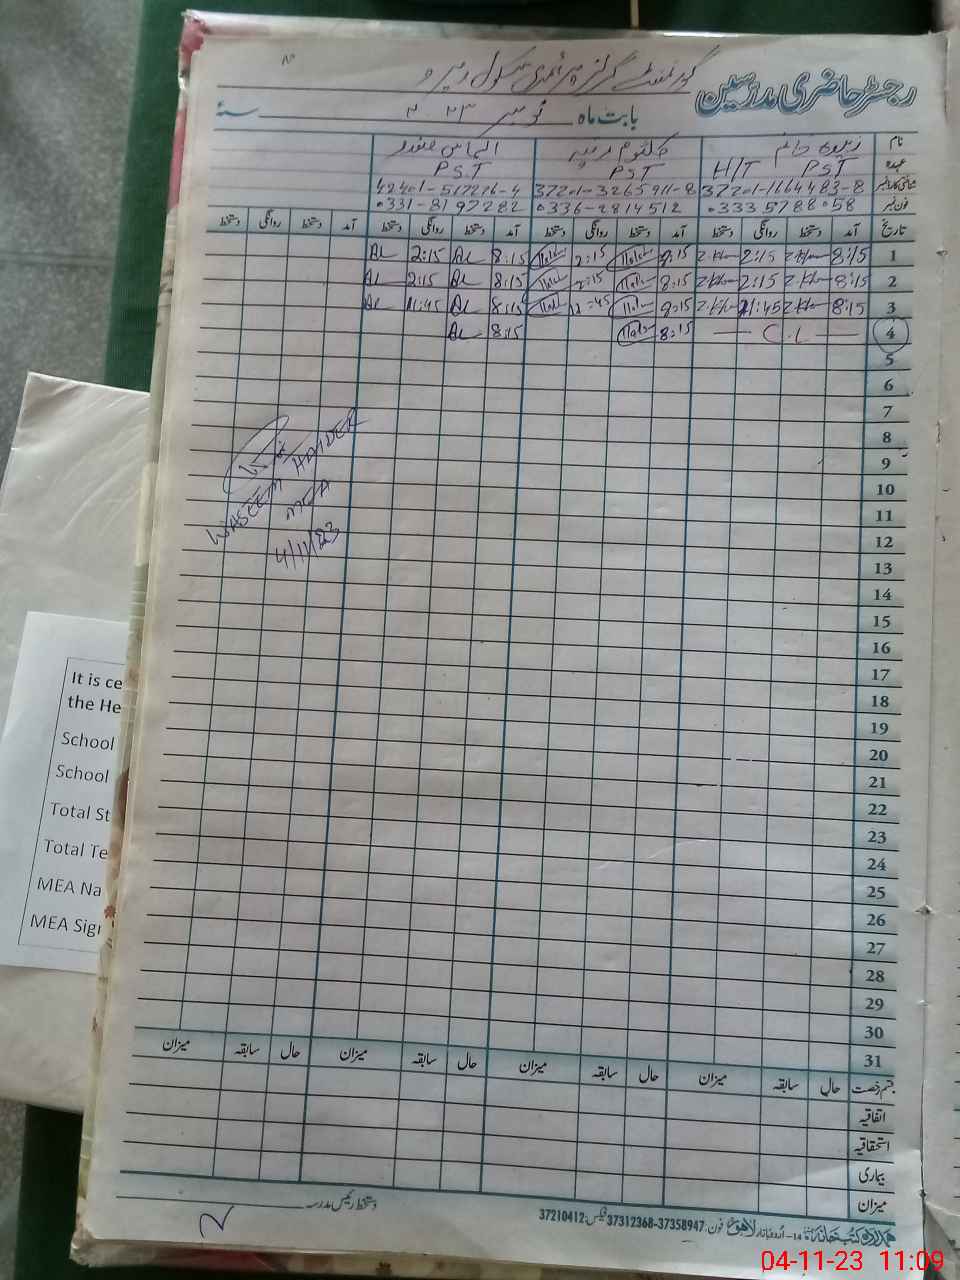 رجسٹر حاضری مدرسین
گورنمنٹ گرلز پرائمری سکول
بابت ماہ نومبر ۲۰۲۳ سنہ
نام
عہدہ H/T PST PST P.S.T
شناختی کارڈ نمبر 37201-1664483-8 37201-3265911-8
فون نمبر 0333 5788058 0336-2814512 0331-8197282
تاریخ آمد دستخط روانگی دستخط آمد دستخط روانگی دستخط آمد دستخط روانگی دستخط آمد دستخط روانگی دستخط
1 8:15 2:15 8:15 2:15 8:15 2:15
2 8:15 2:15 8:15 2:15 8:15 2:15
3 8:15 11:45 8:15 8:15 11:45
4 C.L 8:15 8:15
5
6
7
8
9
10
11
12
13
14
15
16
17
18
19
20
21
22
23
24
25
26
27
28
29
30
31
WASEEM HAIDER
MEA
4/11/23
قسم رخصت حال سابقہ میزان حال سابقہ میزان حال سابقہ میزان حال سابقہ میزان
اتفاقیہ
استحقاقیہ
بیماری
میزان
دستخط رئیس مدرسہ
ہمدرد کتب خانہ 14-اردو بازار لاہور فون: 37358947-37312368 فیکس: 37210412
It is ce
the He
School
School
Total St
Total Te
MEA Na
MEA Sig
04-11-23 11:09